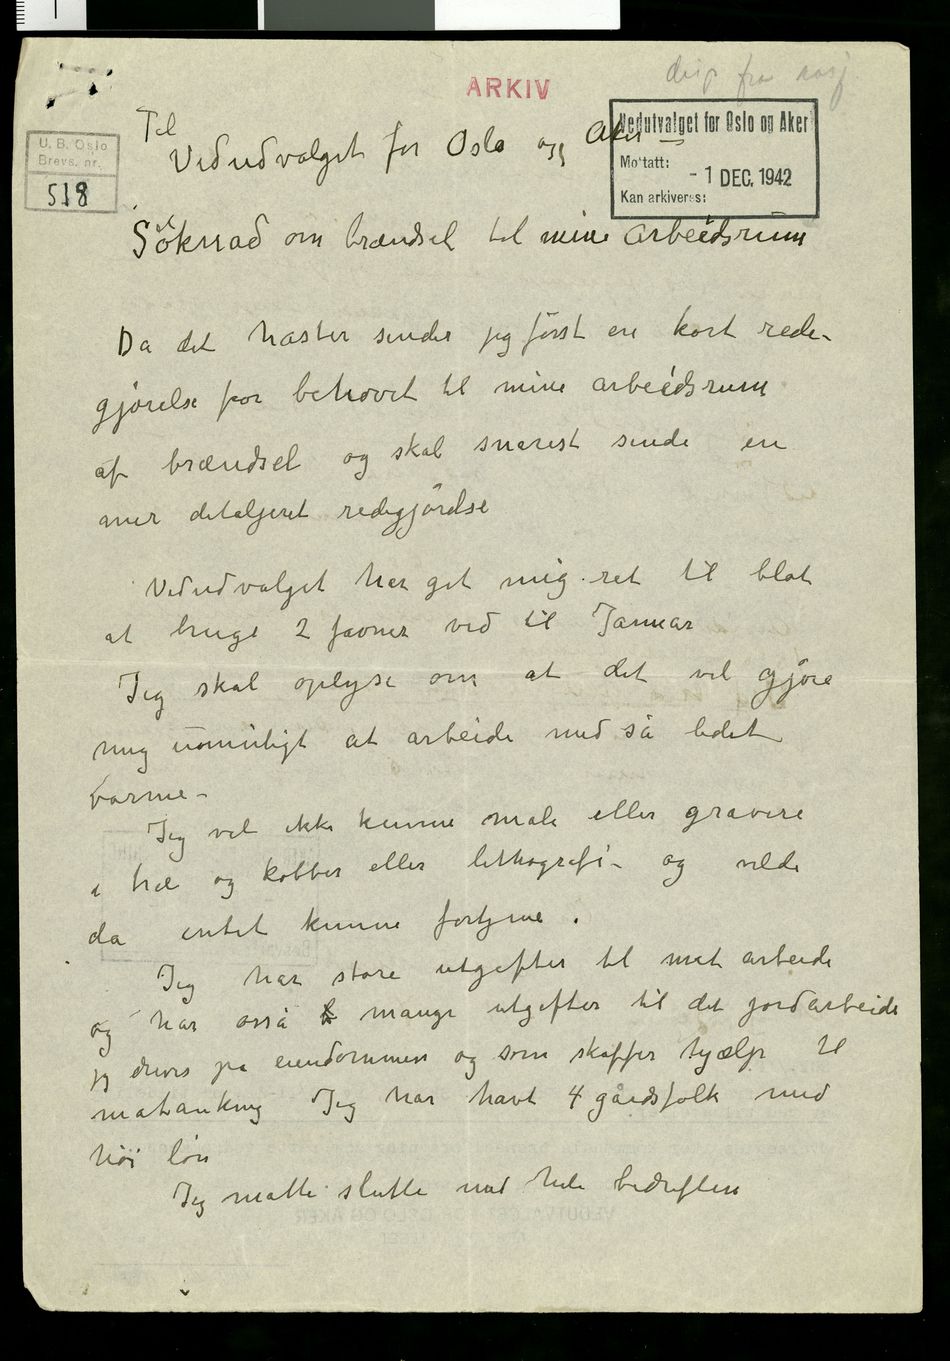 ARKIV
U. B. Oslo
Brevs. nr.
518
Vedutvalget for Oslo og Aker
Mottatt:
- 1 DEC. 1942
Kan arkiveres:
Til
Vedudvalget for Oslo og Aker
Söknad om brændsel til mine arbeidsrum
Da det haster sender jeg först en kort rede-
gjörelse for behovet til mine arbeidsrum
af brændsel og skal snarest sende en
mer detaljeret redegjördse
Vedudvalget har get mig ret til blot
at bruge 2 favner ved til Januar
Jeg skal oplyse om at det vil gjöre
mig uomuligt at arbeide med så lidet
varme-
Jeg vil ikke kunne male eller gravere
i træ og kobber eller lithografi- og vilde
da intet kunne fortjene.
Jeg har store utgifter til mit arbeide
og har osså mange utgifter til det jordarbeide
jeg driver på eiendommen og som skaffer hjælp til
matauking Jeg har havt 4 gårdsfolk med
höi lön
Jeg måtte slutte med hele bedriften